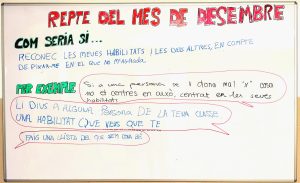 REPTE DEL MES DE DESEMBRE
COM SERIA SI...
RECONEC LES MEUES HABILITATS I LES DELS ALTRES, EN COMPTE
DE FIXAR-ME EN EL QUE NO M'AGRADA
PER EXEMPLE
Si a una persona se li dona mal "x" cosa
no et centres en això, centrat en les seues
habilitats
LI DIUS A ALGUNA PERSONA DE LA TEUA CLASSE
UNA HABILITAT QUE VEUS QUE TÉ
FAIG UNA LLISTA DEL QUE SEM COM BÉ